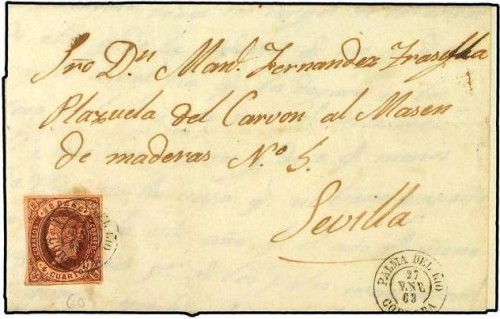 Sro Dn Manl. Fernandez
Plazuela del Carvon al Masen
de maderas No 5.
Sevilla
CORREOS
4 CUARTOS
PALMA DEL RIO
27
ENE
63
CORDOBA
60